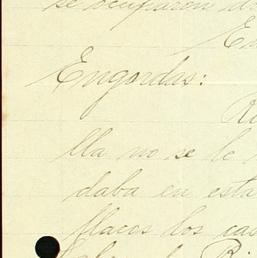 se ocuparon de
En
Engordas:
Ri
lla no se le
daba en esta
flacos los cas